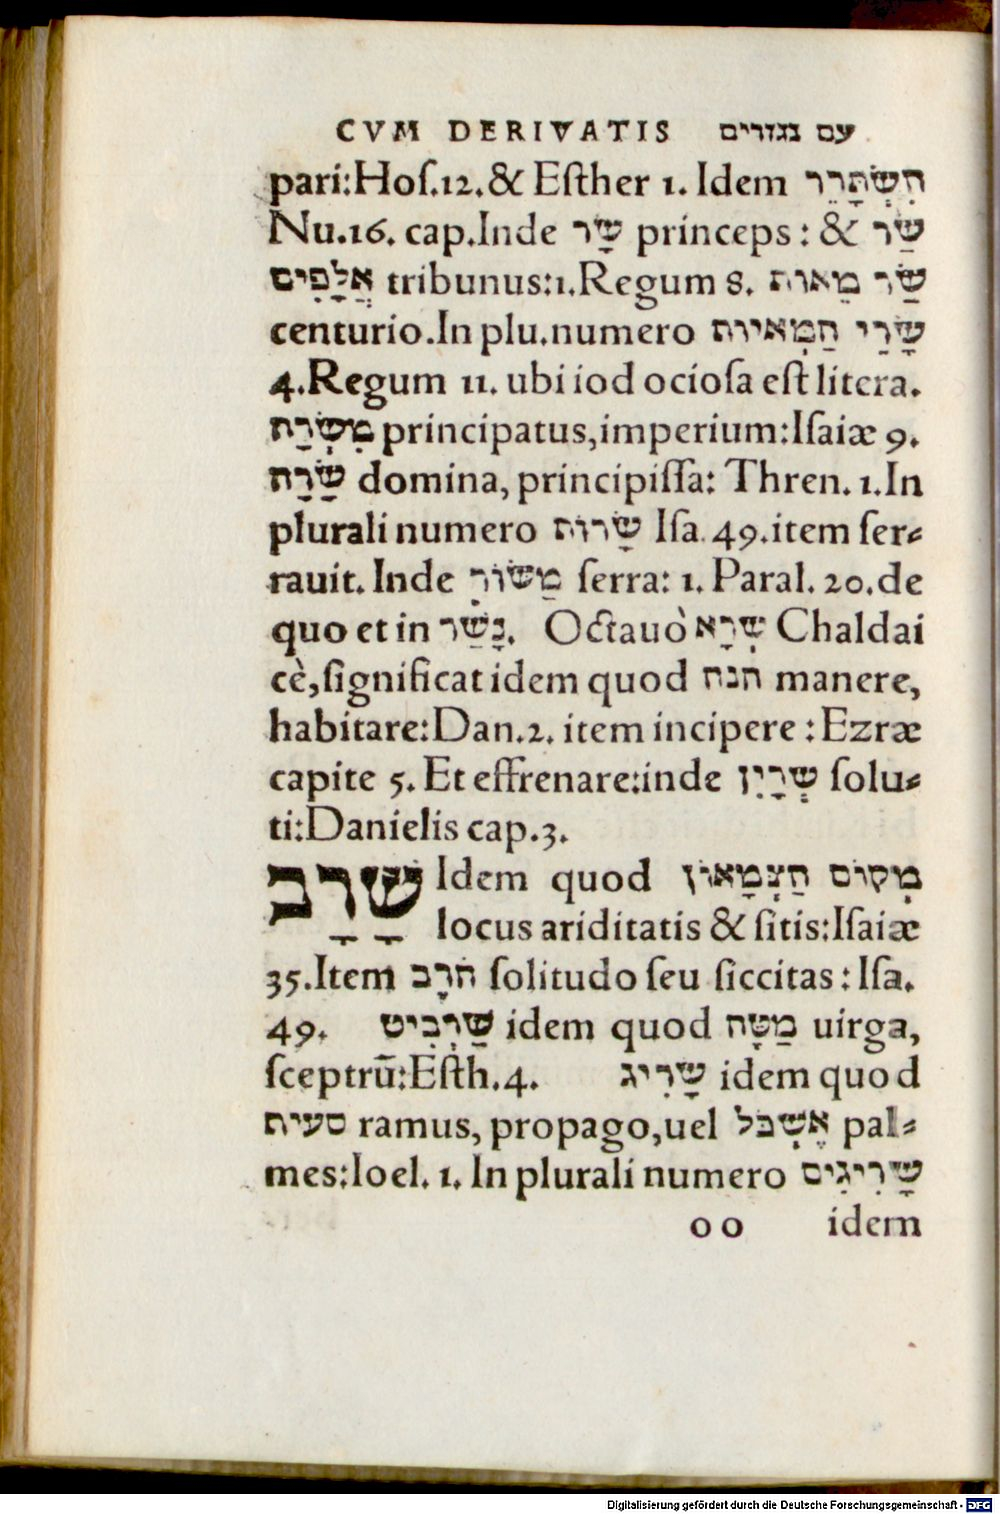 CVM DERIVATIS עם נגזרים
pari:Hoſ.12.& Eſther 1. Idem הִשְׂתָּרֵר
Nu.16. cap.Inde שָׂר princeps: & שַׂר
אֲלָפִים tribunus:1.Regum 8. שַׂר מֵאוֹת
centurio.In plu.numero שָׂרֵי הַמְאִיוֹת
4.Regum 11. ubi iod ocioſa eſt litera.
מִשְׂרַת principatus,imperium:Iſaiæ 9.
שַׂרַת domina, principiſſa: Thren. 1.In
plurali numero שָׂרוֹת Iſa. 49.item ſer⸗
rauit. Inde מַשּׂוֹר ſerra: 1. Paral. 20.de
quo et in נָשַׂר. Octauò שְׁרָא Chaldai
cè,ſignificat idem quod חנה manere,
habitare:Dan.2. item incipere :Ezræ
capite 5. Et effrenare:inde שְׁרַיִן ſolu⸗
ti:Danielis cap.3.
שָׁרָב Idem quod מְקוֹם הַצִּמָּאוֹן
locus ariditatis & ſitis:Iſaiæ
35.Item חֹרֶב ſolitudo ſeu ſiccitas: Iſa.
49. שַׁרְבִיט idem quod מַטֶּה uirga,
ſceptrū:Eſth.4. שָׂרִיג idem quod
סעיף ramus, propago,uel אֶשְׁכֹּל pal⸗
mes:Ioel. 1. In plurali numero שָׂרִיגִים
oo idem
Digitalisierung gefördert durch die Deutsche Forschungsgemeinschaft - DFG